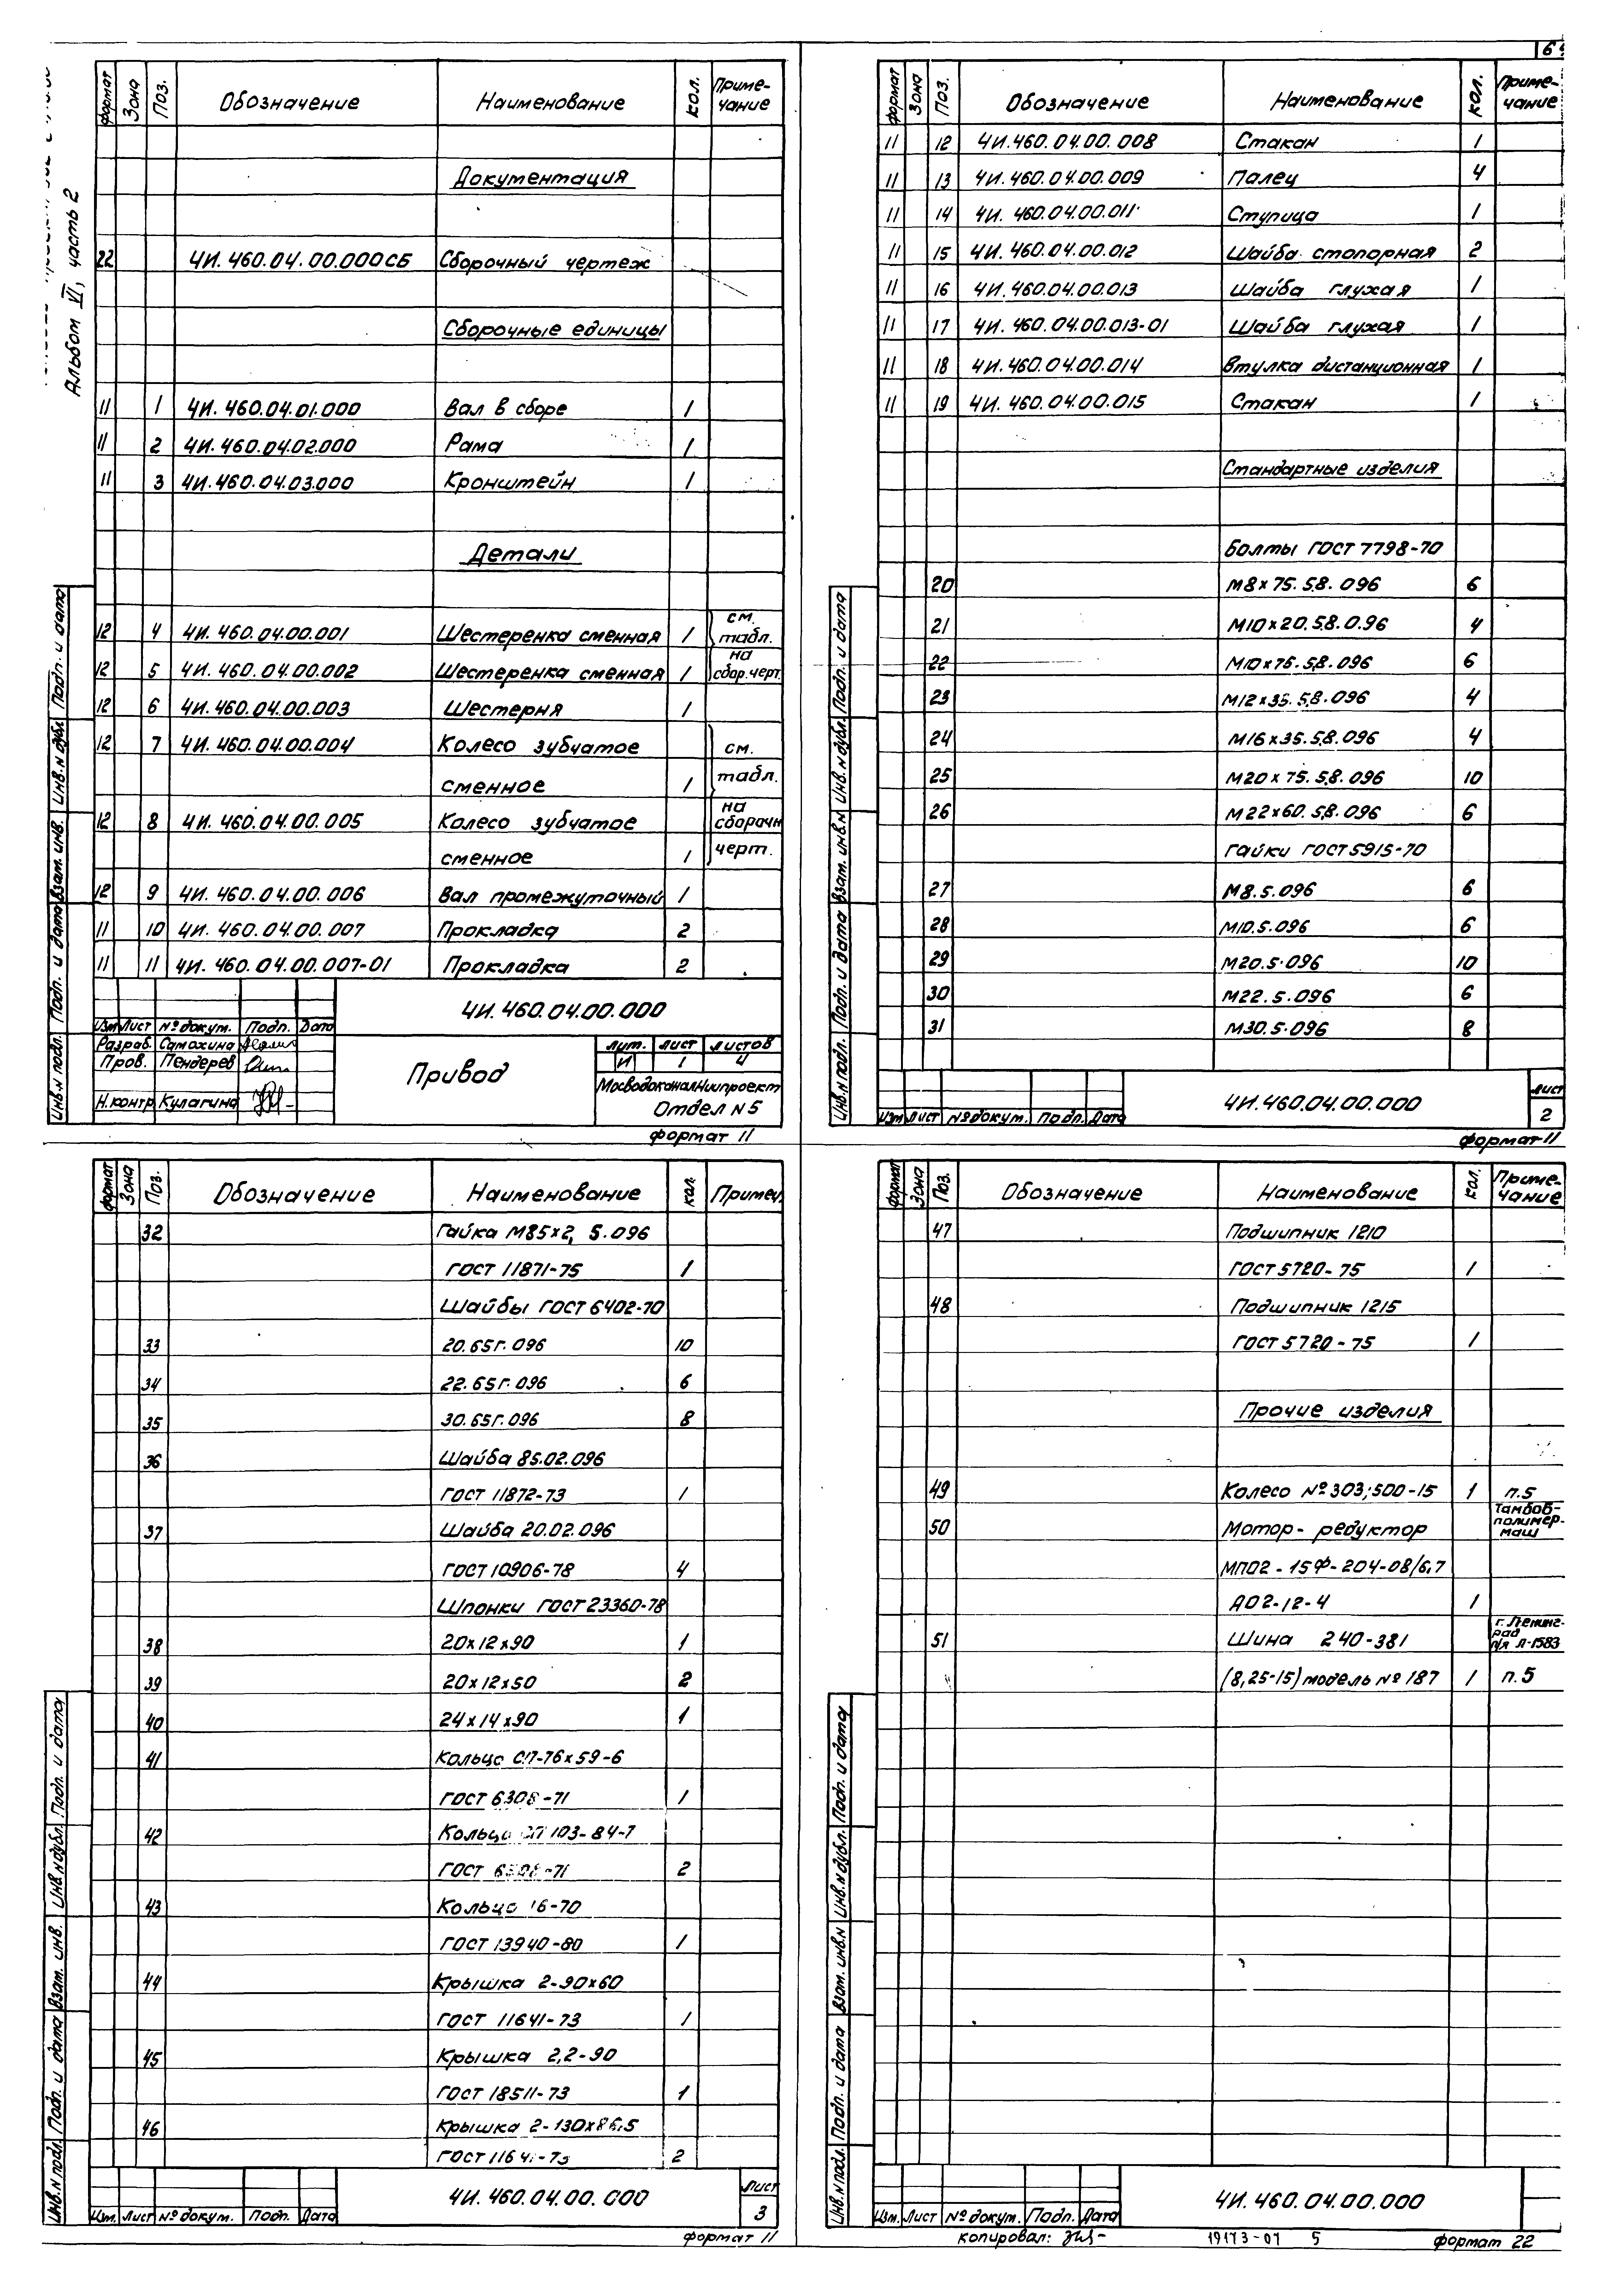 Альбом VI, часть 2
формат Зона Поз. Обозначение Наименование кол. Примечание
Документация
22 4И.460.04.00.000СБ Сборочный чертеж
Сборочные единицы
11 1 4И.460.04.01.000 Вал в сборе 1
11 2 4И.460.04.02.000 Рама 1
11 3 4И.460.04.03.000 Кронштейн 1
Детали
12 4 4И.460.04.00.001 Шестеренка сменная 1 см. табл.
12 5 4И.460.04.00.002 Шестеренка сменная 1 на сбор.черт.
12 6 4И.460.04.00.003 Шестерня 1
12 7 4И.460.04.00.004 Колесо зубчатое см.
сменное 1 табл.
12 8 4И.460.04.00.005 Колесо зубчатое на сборочн
сменное 1 черт.
12 9 4И.460.04.00.006 Вал промежуточный 1
11 10 4И.460.04.00.007 Прокладка 2
11 11 4И.460.04.00.007-01 Прокладка 2
Инв.н подл. Подп. и дата Взам. инв. Инв.н дубл. Подп. и дата
4И.460.04.00.000
Изм Лист № докум. Подп. Дата
Разраб. Самохина
Пров. Пендерев
Н.контр Кулагина
Привод
лит. лист листов
И 1 4
МосводоканалНиипроект
Отдел N5
формат 11
64
формат Зона Поз. Обозначение Наименование кол. Примечание
11 12 4И.460.04.00.008 Стакан 1
11 13 4И.460.04.00.009 Палец 4
11 14 4И.460.04.00.011 Ступица 1
11 15 4И.460.04.00.012 Шайба стопорная 2
11 16 4И.460.04.00.013 Шайба глухая 1
11 17 4И.460.04.00.013-01 Шайба глухая 1
11 18 4И.460.04.00.014 Втулка дистанционная 1
11 19 4И.460.04.00.015 Стакан 1
Стандартные изделия
Болты ГОСТ 7798-70
20 М8х75.58.096 6
21 М10х20.58.0.96 4
22 М10х75.58.096 6
23 М12х35.58.096 4
24 М16х35.58.096 4
25 М20х75.58.096 10
26 М22х60.58.096 6
Гайки ГОСТ 5915-70
27 М8.5.096 6
28 М10.5.096 6
29 М20.5.096 10
30 М22.5.096 6
31 М30.5.096 8
Инв.н подл. Подп. и дата Взам. инв.н Инв.н дубл. Подп. и дата
Изм Лист № докум. Подп. Дата
4И.460.04.00.000
лист
2
формат 11
формат Зона Поз. Обозначение Наименование кол. Примеч.
32 Гайка М85х2, 5.096
ГОСТ 11871-75 1
Шайбы ГОСТ 6402-70
33 20.65Г.096 10
34 22.65Г.096 6
35 30.65Г.096 8
36 Шайба 85.02.096
ГОСТ 11872-73 1
37 Шайба 20.02.096
ГОСТ 10906-78 4
Шпонки ГОСТ 23360-78
38 20х12х90 1
39 20х12х50 2
40 24х14х90 1
41 Кольцо СП-76х59-6
ГОСТ 6308-71 1
42 Кольцо СП 103-84-7
ГОСТ 6308-71 2
43 Кольцо 16-70
ГОСТ 13940-80 1
44 Крышка 2-90х60
ГОСТ 11641-73 1
45 Крышка 2,2-90
ГОСТ 18511-73 1
46 Крышка 2-130х86,5
ГОСТ 11641-73 2
Инв.н подл. Подп. и дата Взам. инв. Инв.н дубл. Подп. и дата
Изм. Лист № докум. Подп. Дата
4И.460.04.00.000
Лист
3
формат 11
формат Зона Поз. Обозначение Наименование кол. Примечание
47 Подшипник 1210
ГОСТ 5720-75 1
48 Подшипник 1215
ГОСТ 5720-75 1
Прочие изделия
49 Колесо №303;500-15 1 п.5
50 Мотор-редуктор Тамбовполимермаш
МПО2-15Ф-204-08/6,7
АО2-12-4 1
51 Шина 240-381 г. Ленинград п/я Л-1583
(8,25-15) модель №187 1 п.5
Инв.н подл. Подп. и дата Взам. инв.н Инв.н дубл. Подп. и дата
Изм. Лист № докум. Подп. Дата
4И.460.04.00.000
копировал: 19173-07 5 формат 22